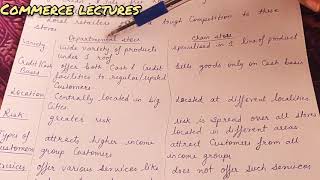 Commerce lectures
local retailers tough Competition to these
stores
Departmental store chain store
Variety wide variety of products specialised in 1 line of product
under 1 roof
Credit/Cash offer both Cash & Credit sells goods only on Cash basis
Basis facilities to regular/reputed
Customers
Location Centrally located in big located at different localities
Cities
Risk greater risk risk is spread over all stores
located in different areas
Types of attracts higher income attract Customers from all
Customers group Customers income groups
Services offer various services like does not offer such services